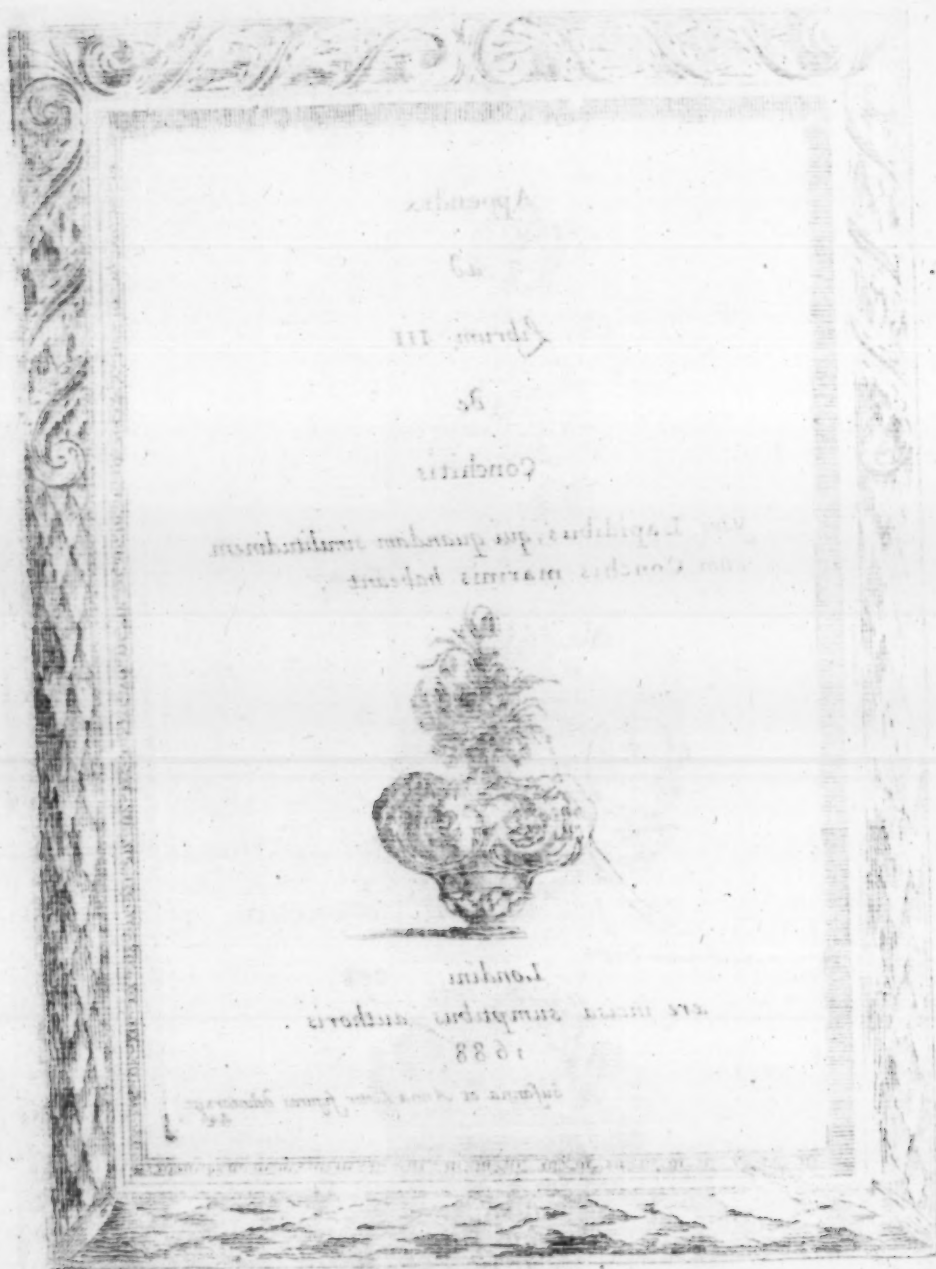 Appendix
ad
Librum III
de
Conchitis
Lapidibus, qui quandam similitudinem
cum Conchis marinis habeant
Londini
aere incisa sumptibus authoris
1688
Susanna et Anna figuras